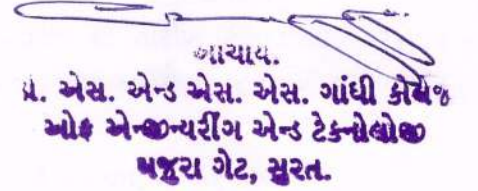 આચાર્ય.
ડૉ. એસ. એન્ડ એસ. એસ. ગાંધી કોલેજ
ઓફ એન્જીન્યરીંગ એન્ડ ટેકનોલોજી
મજુરા ગેટ, સુરત.